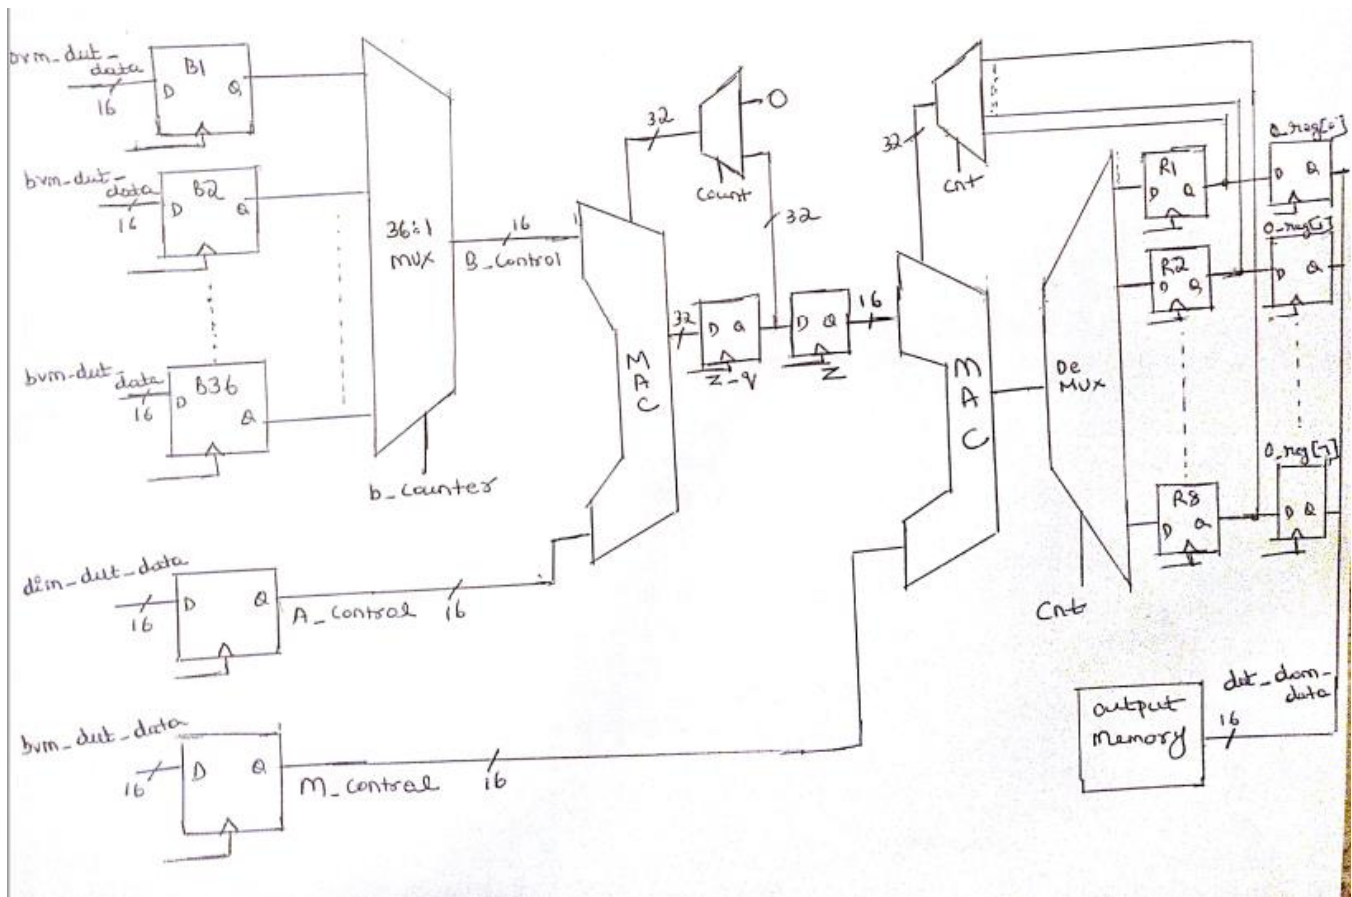 bvm_dut_
data
16
B1
D
Q
bvm_dut_
data
16
B2
D
Q
bvm_dut_
data
16
B36
D
Q
36:1
MUX
b_counter
16
B_Control
dim_dut_data
16
D
Q
A_Control
16
bvm_dut_data
16
D
Q
M_Control
16
MAC
32
0
Count
32
32
D
Q
Z-q
D
Q
Z
16
MAC
32
Cnt
De
MUX
Cnt
R1
D
Q
R2
D
Q
R8
D
Q
D
Q
D
Q
D
Q
output
Memory
data
16